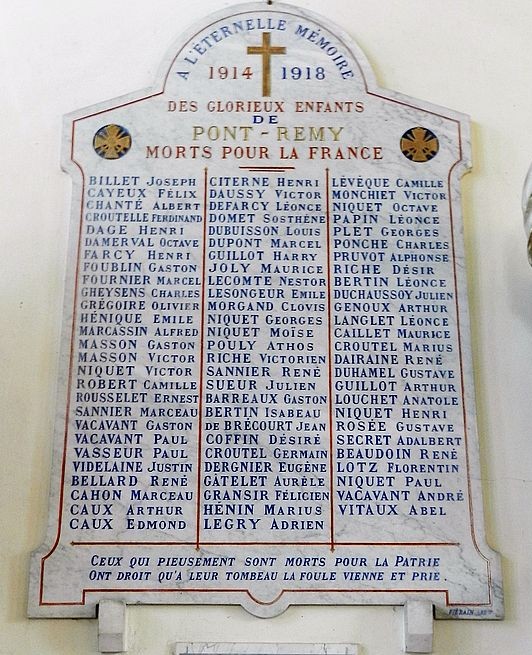 A L'ÉTERNELLE MÉMOIRE
1914 1918
DES GLORIEUX ENFANTS
DE
PONT-REMY
MORTS POUR LA FRANCE
BILLET JOSEPH
CAYEUX FÉLIX
CHANTÉ ALBERT
CROUTELLE FERDINAND
DAGE HENRI
DAMERVAL OCTAVE
FARCY HENRI
FOUBLIN GASTON
FOURNIER MARCEL
GHEYSENS CHARLES
GRÉGOIRE OLIVIER
HÉNIQUE EMILE
MARCASSIN ALFRED
MASSON GASTON
MASSON VICTOR
NIQUET VICTOR
ROBERT CAMILLE
ROUSSELET ERNEST
SANNIER MARCEAU
VACAVANT GASTON
VACAVANT PAUL
VASSEUR PAUL
VIDELAINE JUSTIN
BELLARD RENÉ
CAHON MARCEAU
CAUX ARTHUR
CAUX EDMOND
CITERNE HENRI
DAUSSY VICTOR
DEFARCY LÉONCE
DOMET SOSTHÈNE
DUBUISSON LOUIS
DUPONT MARCEL
GUILLOT HARRY
JOLY MAURICE
LECOMTE NESTOR
LESONGEUR EMILE
MORGAND CLOVIS
NIQUET GEORGES
NIQUET MOÏSE
POULY ATHOS
RICHE VICTORIEN
SANNIER RENÉ
SUEUR JULIEN
BARREAUX GASTON
BERTIN ISABEAU
DE BRÉCOURT JEAN
COFFIN DÉSIRÉ
CROUTEL GERMAIN
DERGNIER EUGÈNE
GÂTELET AURÈLE
GRANSIR FÉLICIEN
HÉNIN MARIUS
LEGRY ADRIEN
LÉVÊQUE CAMILLE
MONCHIET VICTOR
NIQUET OCTAVE
PAPIN LÉONCE
PLET GEORGES
PONCHE CHARLES
PRUVOT ALPHONSE
RICHE DÉSIR
BERTIN LÉONCE
DUCHAUSSOY JULIEN
GENOUX ARTHUR
LANGLET LÉONCE
CAILLET MAURICE
CROUTEL MARIUS
DAIRAINE RENÉ
DUHAMEL GUSTAVE
GUILLOT ARTHUR
LOUCHET ANATOLE
NIQUET HENRI
ROSÉE GUSTAVE
SECRET ADALBERT
BEAUDOIN RENÉ
LOTZ FLORENTIN
NIQUET PAUL
VACAVANT ANDRÉ
VITAUX ABEL
CEUX QUI PIEUSEMENT SONT MORTS POUR LA PATRIE
ONT DROIT QU'A LEUR TOMBEAU LA FOULE VIENNE ET PRIE.